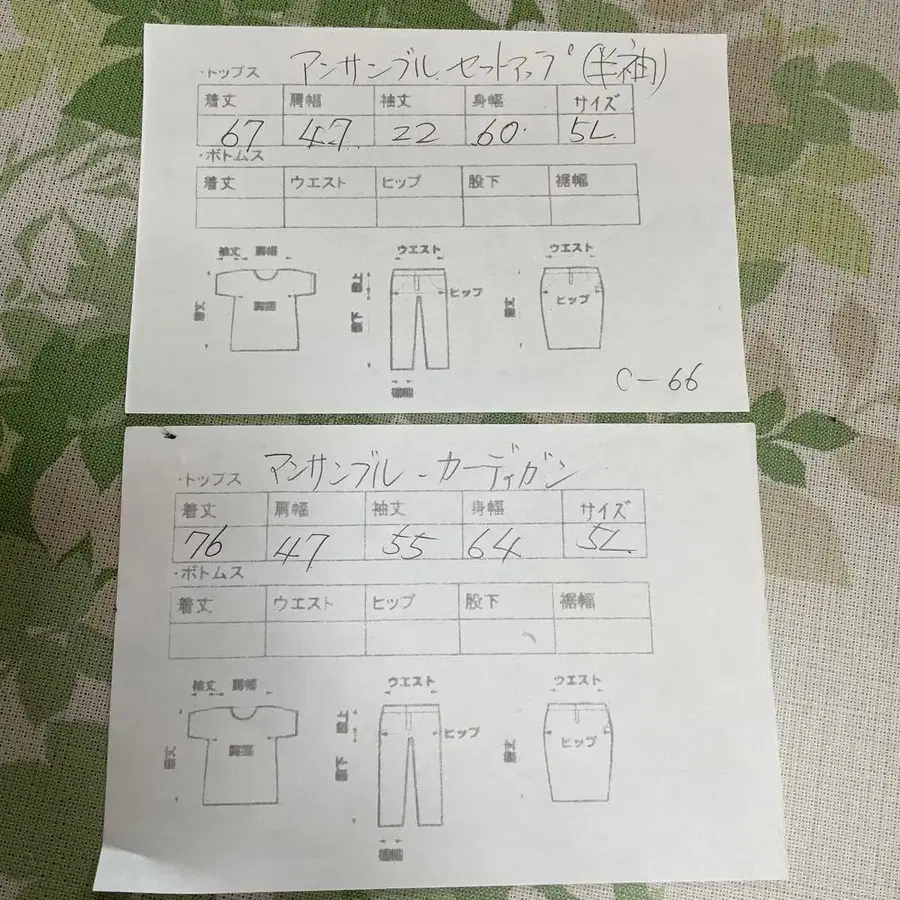 アンサンブル.セットアップ(半袖)
・トップス
着丈 肩幅 袖丈 身幅 サイズ
67 47 22 60. 5L
・ボトムス
着丈 ウエスト ヒップ 股下 裾幅
袖丈 肩幅 ウエスト ウエスト
ヒップ ヒップ
C-66
アンサンブル-カーディガン
・トップス
着丈 肩幅 袖丈 身幅 サイズ
76 47 55 64 5L
・ボトムス
着丈 ウエスト ヒップ 股下 裾幅
袖丈 肩幅 ウエスト ウエスト
ヒップ ヒップ